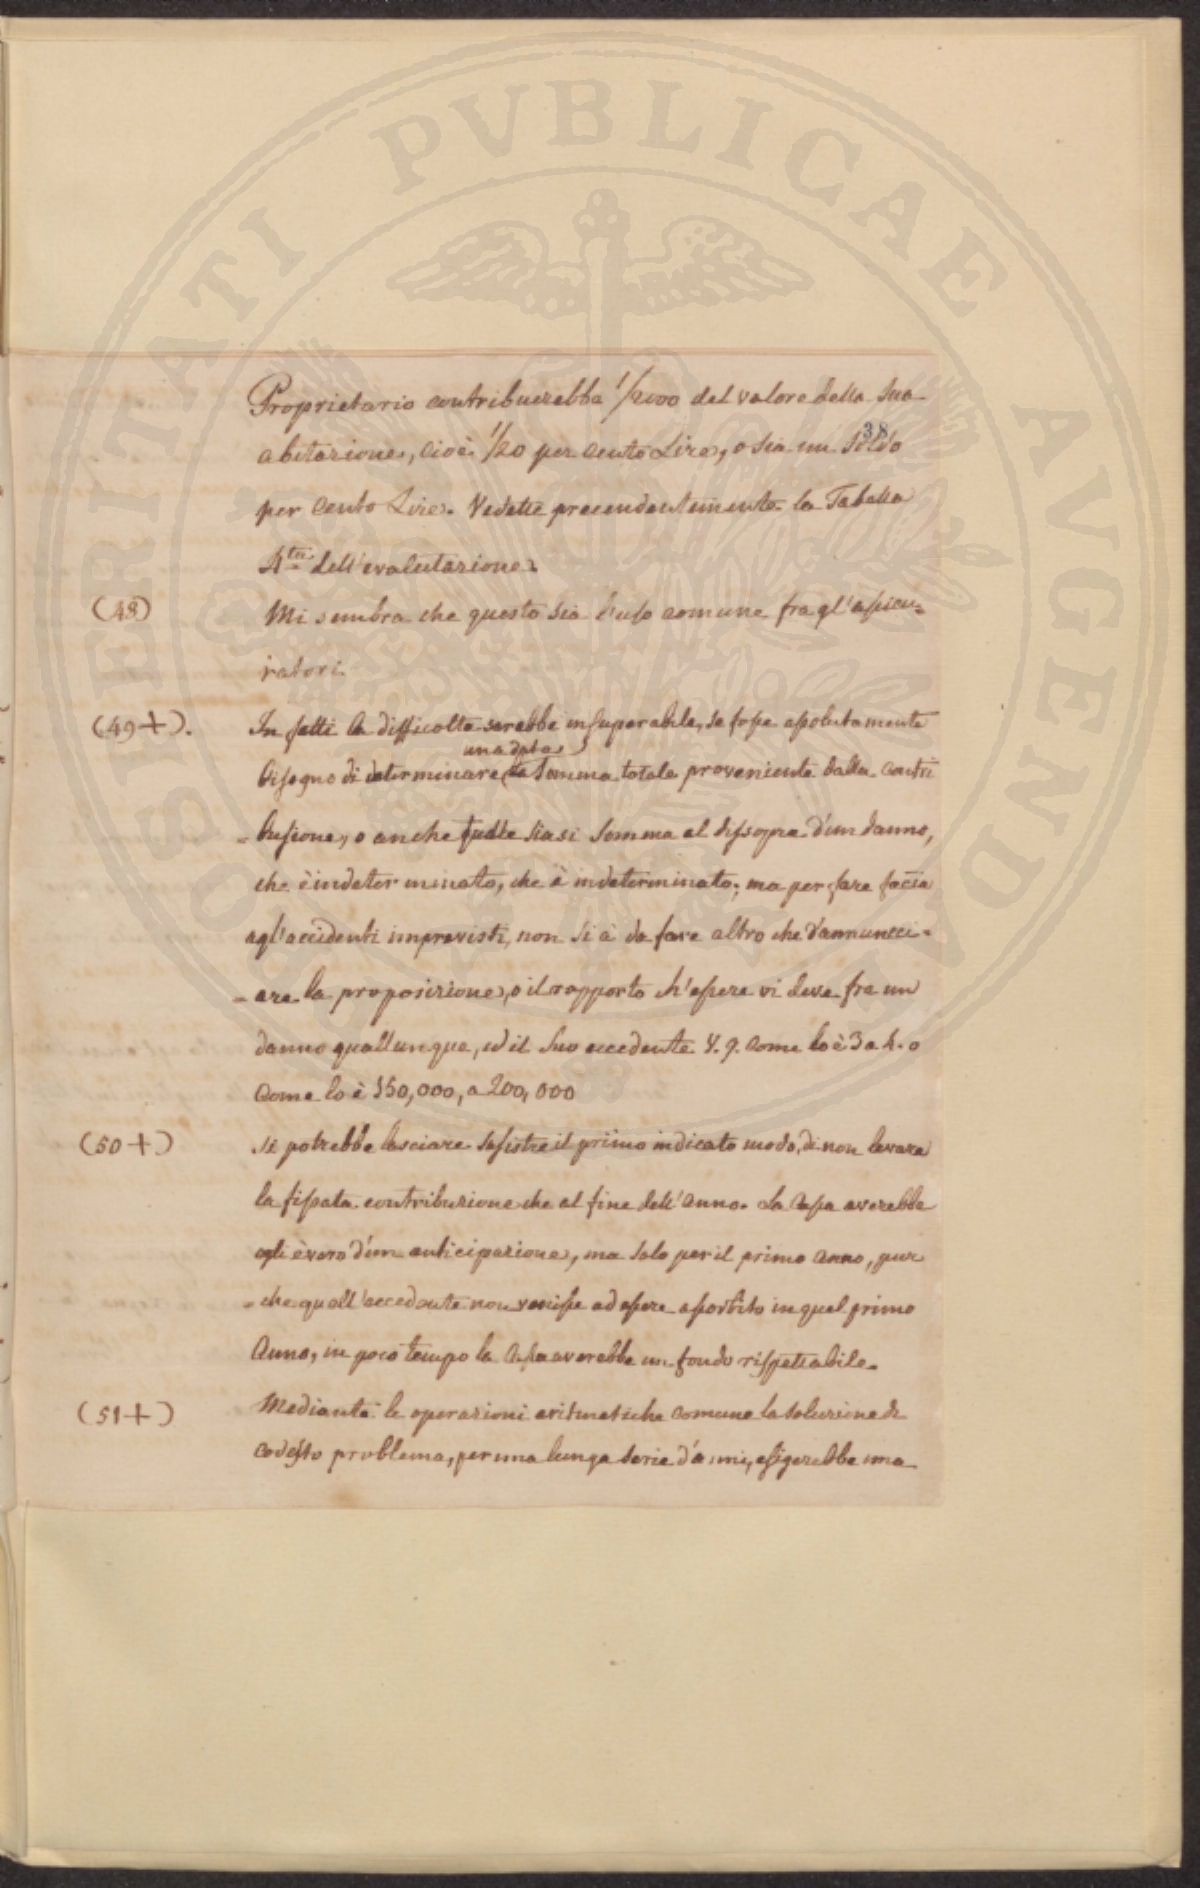 POSTERITATI PVBLICAE AVGENDAE
38
Proprietario contribuerebbe 1/2000 del valore della sua
abitazione, cioè 1/20 per cento Lire, o sia un Soldo
per cento Lire. Vedette precendentemente la Tabella
4.ta dell'evalutazione.
(48) Mi sembra che questo sia l'uso comune fra gl'assicu-
ratori.
(49+). In fatti la difficolta serebbe insuperabile, se fosse assolutamente
una data
bisogno di determinare la Somma totale proveniente dalla contri
-busione, o anche quale siasi Somma al dissopra d'un danno,
che è indeterminato, che è indeterminato; ma per fare facia
agl'accidenti imprevisti, non si à da fare altro che d'annunci-
-are la proposizione, o il rapporto ch'essere vi deve fra un
danno quallunque, ed il Suo eccedente V. g. come lo è 3 a 4. o
come lo è 150,000, a 200,000
(50+) Si potrebbe lasciare susistre il primo indicato modo, di non levare
la fissata contribuzione che al fine dell'anno. La Cassa averebbe
egli è vero d'un anticipazione, ma solo per il primo anno, pur
-che quell'eccedente non venisse ad essere assorbito in quel primo
Anno, in poco tempo la Cassa averebbe un fondo rispettabile.
(51+) Mediante le operazioni aritmetiche comune la soluzione di
codesto problema, per una lunga serie d'anni, esigerebbe una